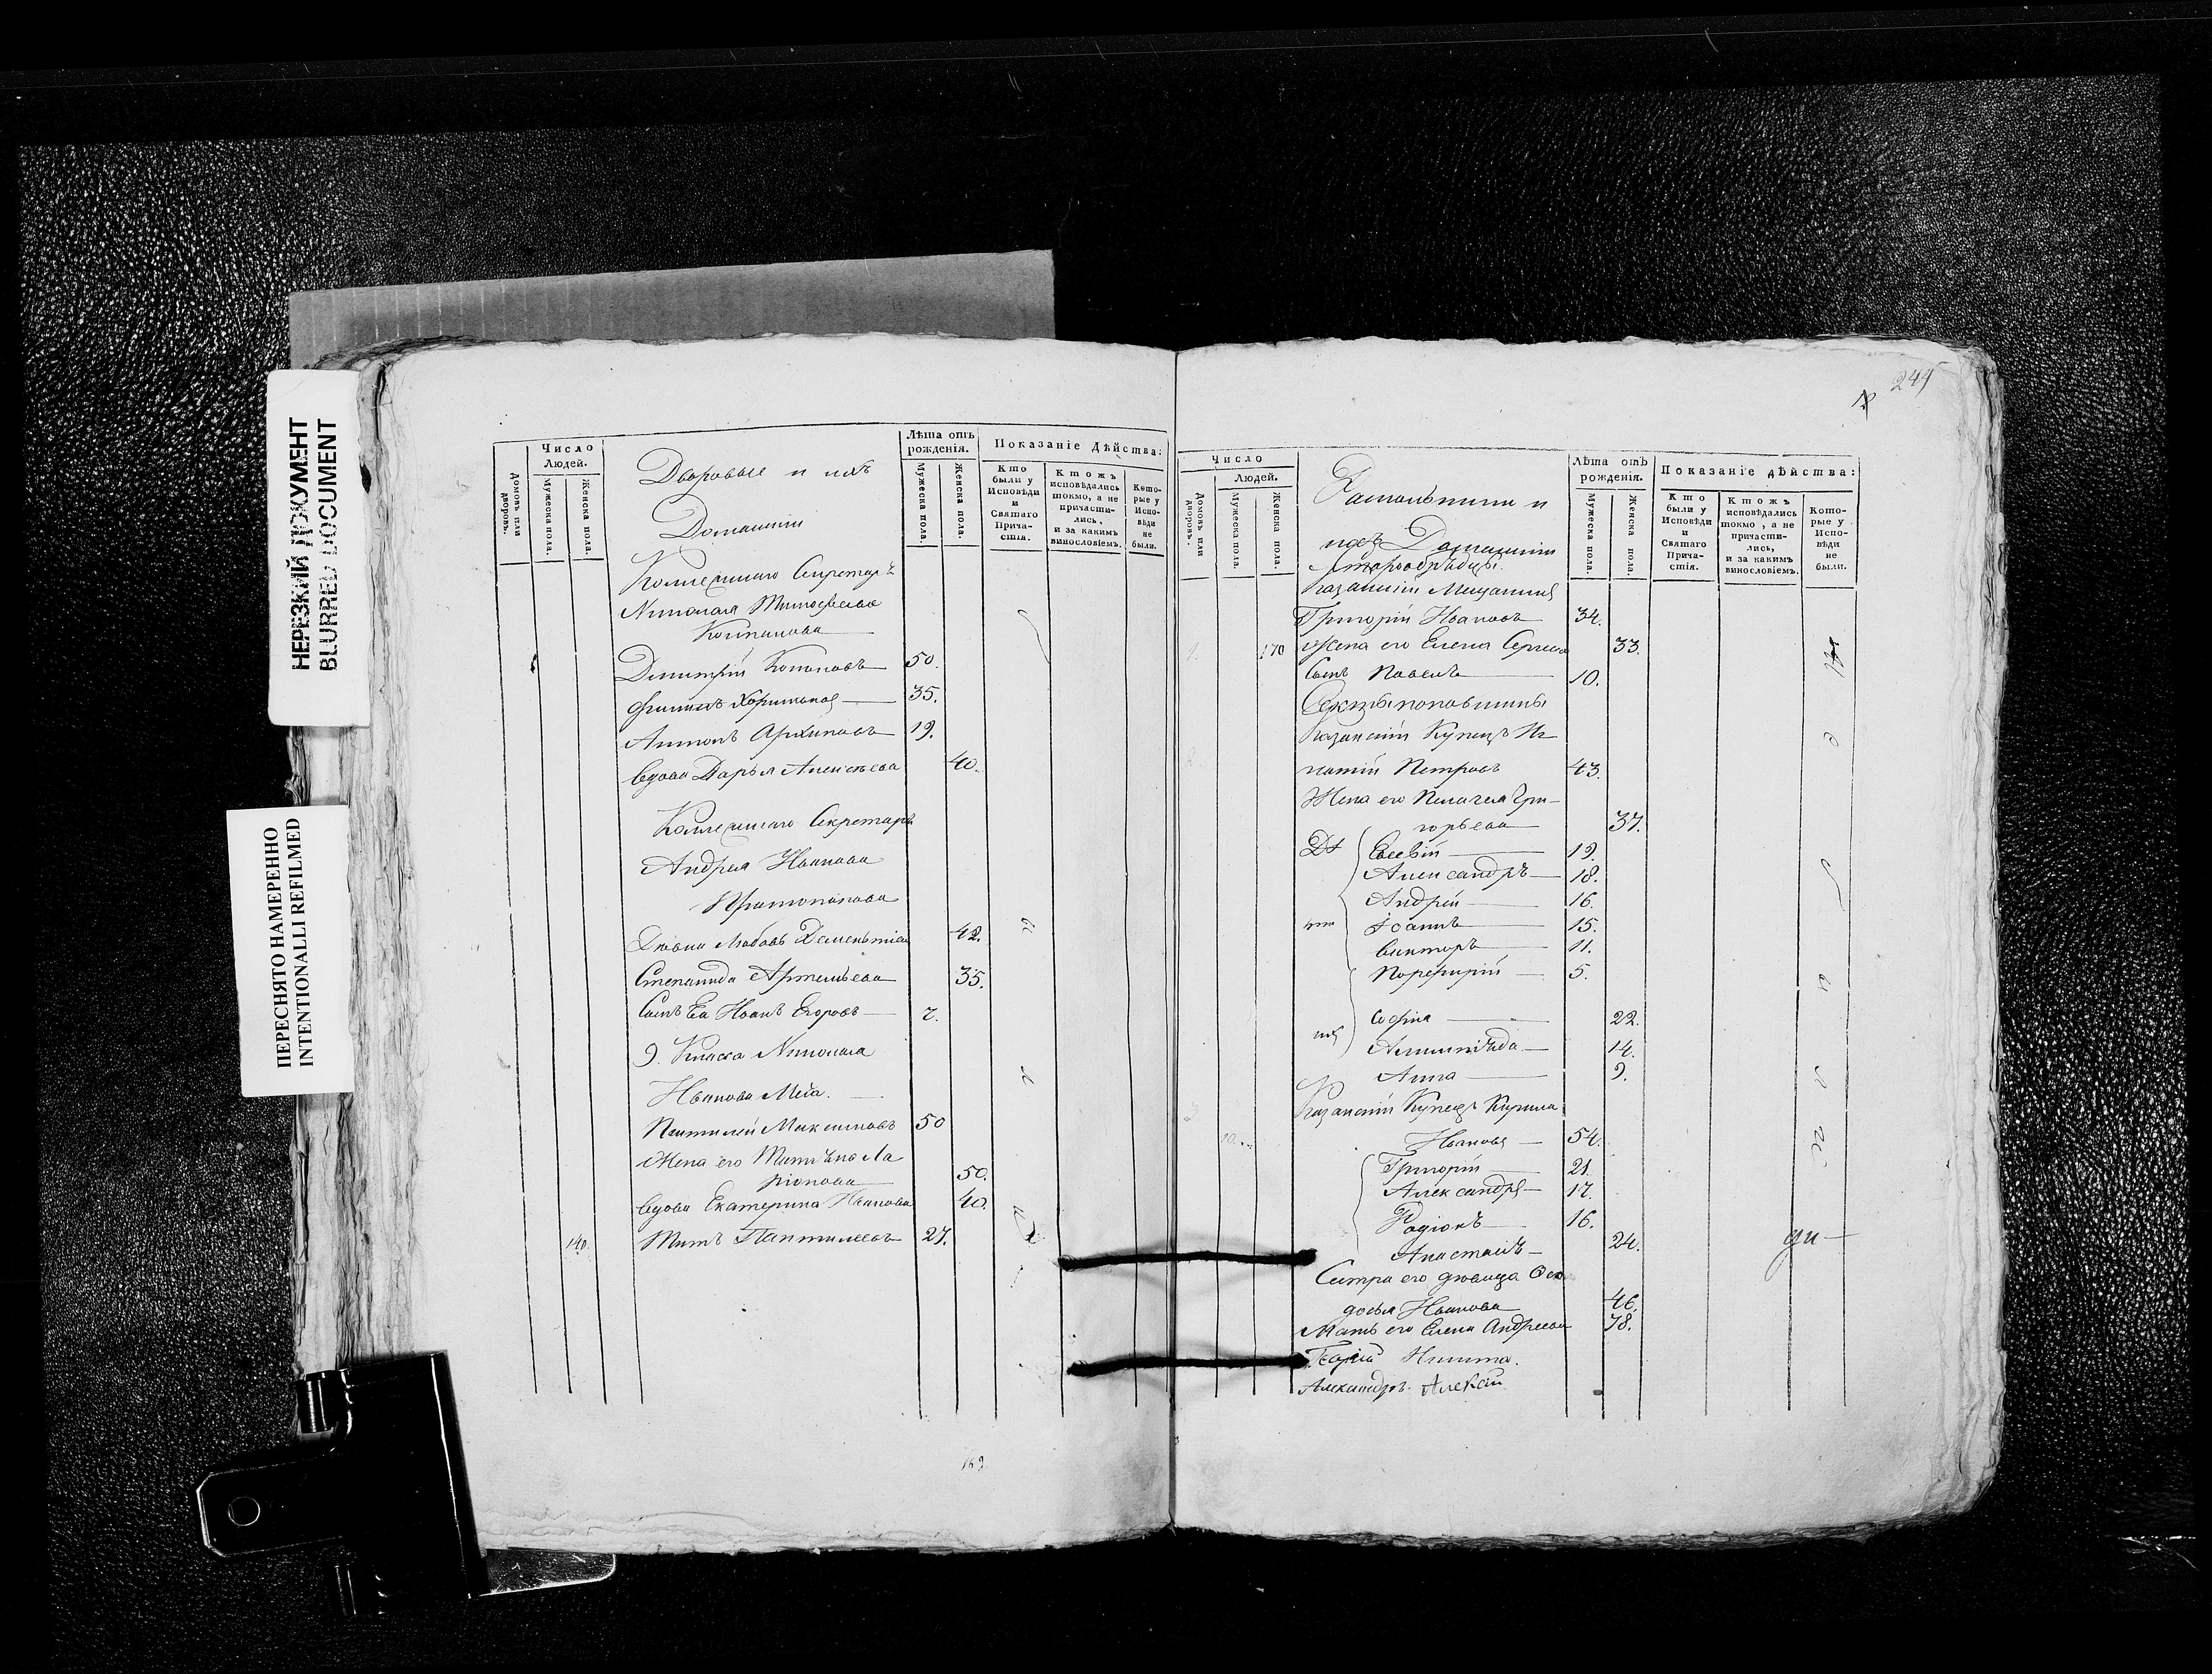 НЕРЕЗКИЙ ДОКУМЕНТ
BLURRED DOCUMENT
ПЕРЕСНЯТО НАМЕРЕННО
INTENTIONALLI REFILMED
Домовъ или дворовъ.
Число Людей.
Мужеска пола.
Женска пола.
Дворовые и ихъ
Домашніи
Лѣта отъ рожденія.
Мужеска пола.
Женска пола.
Показаніе Дѣйства:
Кто были у Исповѣди и Святаго Причастія.
Ктожъ исповѣдались токмо, а не причастились, и за какимъ винословіемъ.
Которые у Исповѣди не были.
Коллежскаго Секретаря
Николая Тимофеева
Димитрій Кононовъ 50.
Филипъ 35.
Антонъ Архиповъ 19.
вдова Дарья Алексѣева 40.
Коллежскаго Секретаря
Андрея Иванова
Протопопова
Любовь 42.
Степанида Артемьева 35.
Сынъ Ея Иванъ Егоровъ 7.
Князя Николая
Иванова
Пантилей Максимовъ 50
Жена его Татьяна Ла
ріонова 50.
вдова Екатерина Иванова 40.
140. Титъ Пантилеевъ 27.
169
244
Число
Людей.
Домовъ или дворовъ.
Мужеска пола.
Женска пола.
Раскольники и
ихъ Домашніи
Старообрядцы.
Лѣта отъ рожденія.
Мужеска пола.
Женска пола.
Показаніе дѣйства:
Кто были у Исповѣди и Святаго Причастія.
Ктожъ исповѣдались токмо, а не причастились, и за какимъ винословіемъ.
Которые у Исповѣди не были.
Казанскій Мещанинъ
Григорій Ивановъ 34.
1. 170 Жена его Елена Сергеева 33.
Сынъ Павелъ 10.
Секты поповщины
Казанскій Купецъ Иг
натій Петровъ 43.
Жена его Пелагея Гри-
горьева 37.
Дѣ Евсевій 19.
Александръ 18.
Андрей 16.
ти Іоаннъ 15.
Викторъ 11.
Порфирій 5.
ихъ Софія 22.
14.
Анна 9.
Казанскій Купецъ Кирила
Ивановъ 54.
Григорій 21.
Александръ 17.
Родіонъ 16.
24.
Сестра его дѣвица Ѳео
досья Иванова 46.
Мать его Елена Андреева 78.
Георгій Никита.
Александръ. Алексій